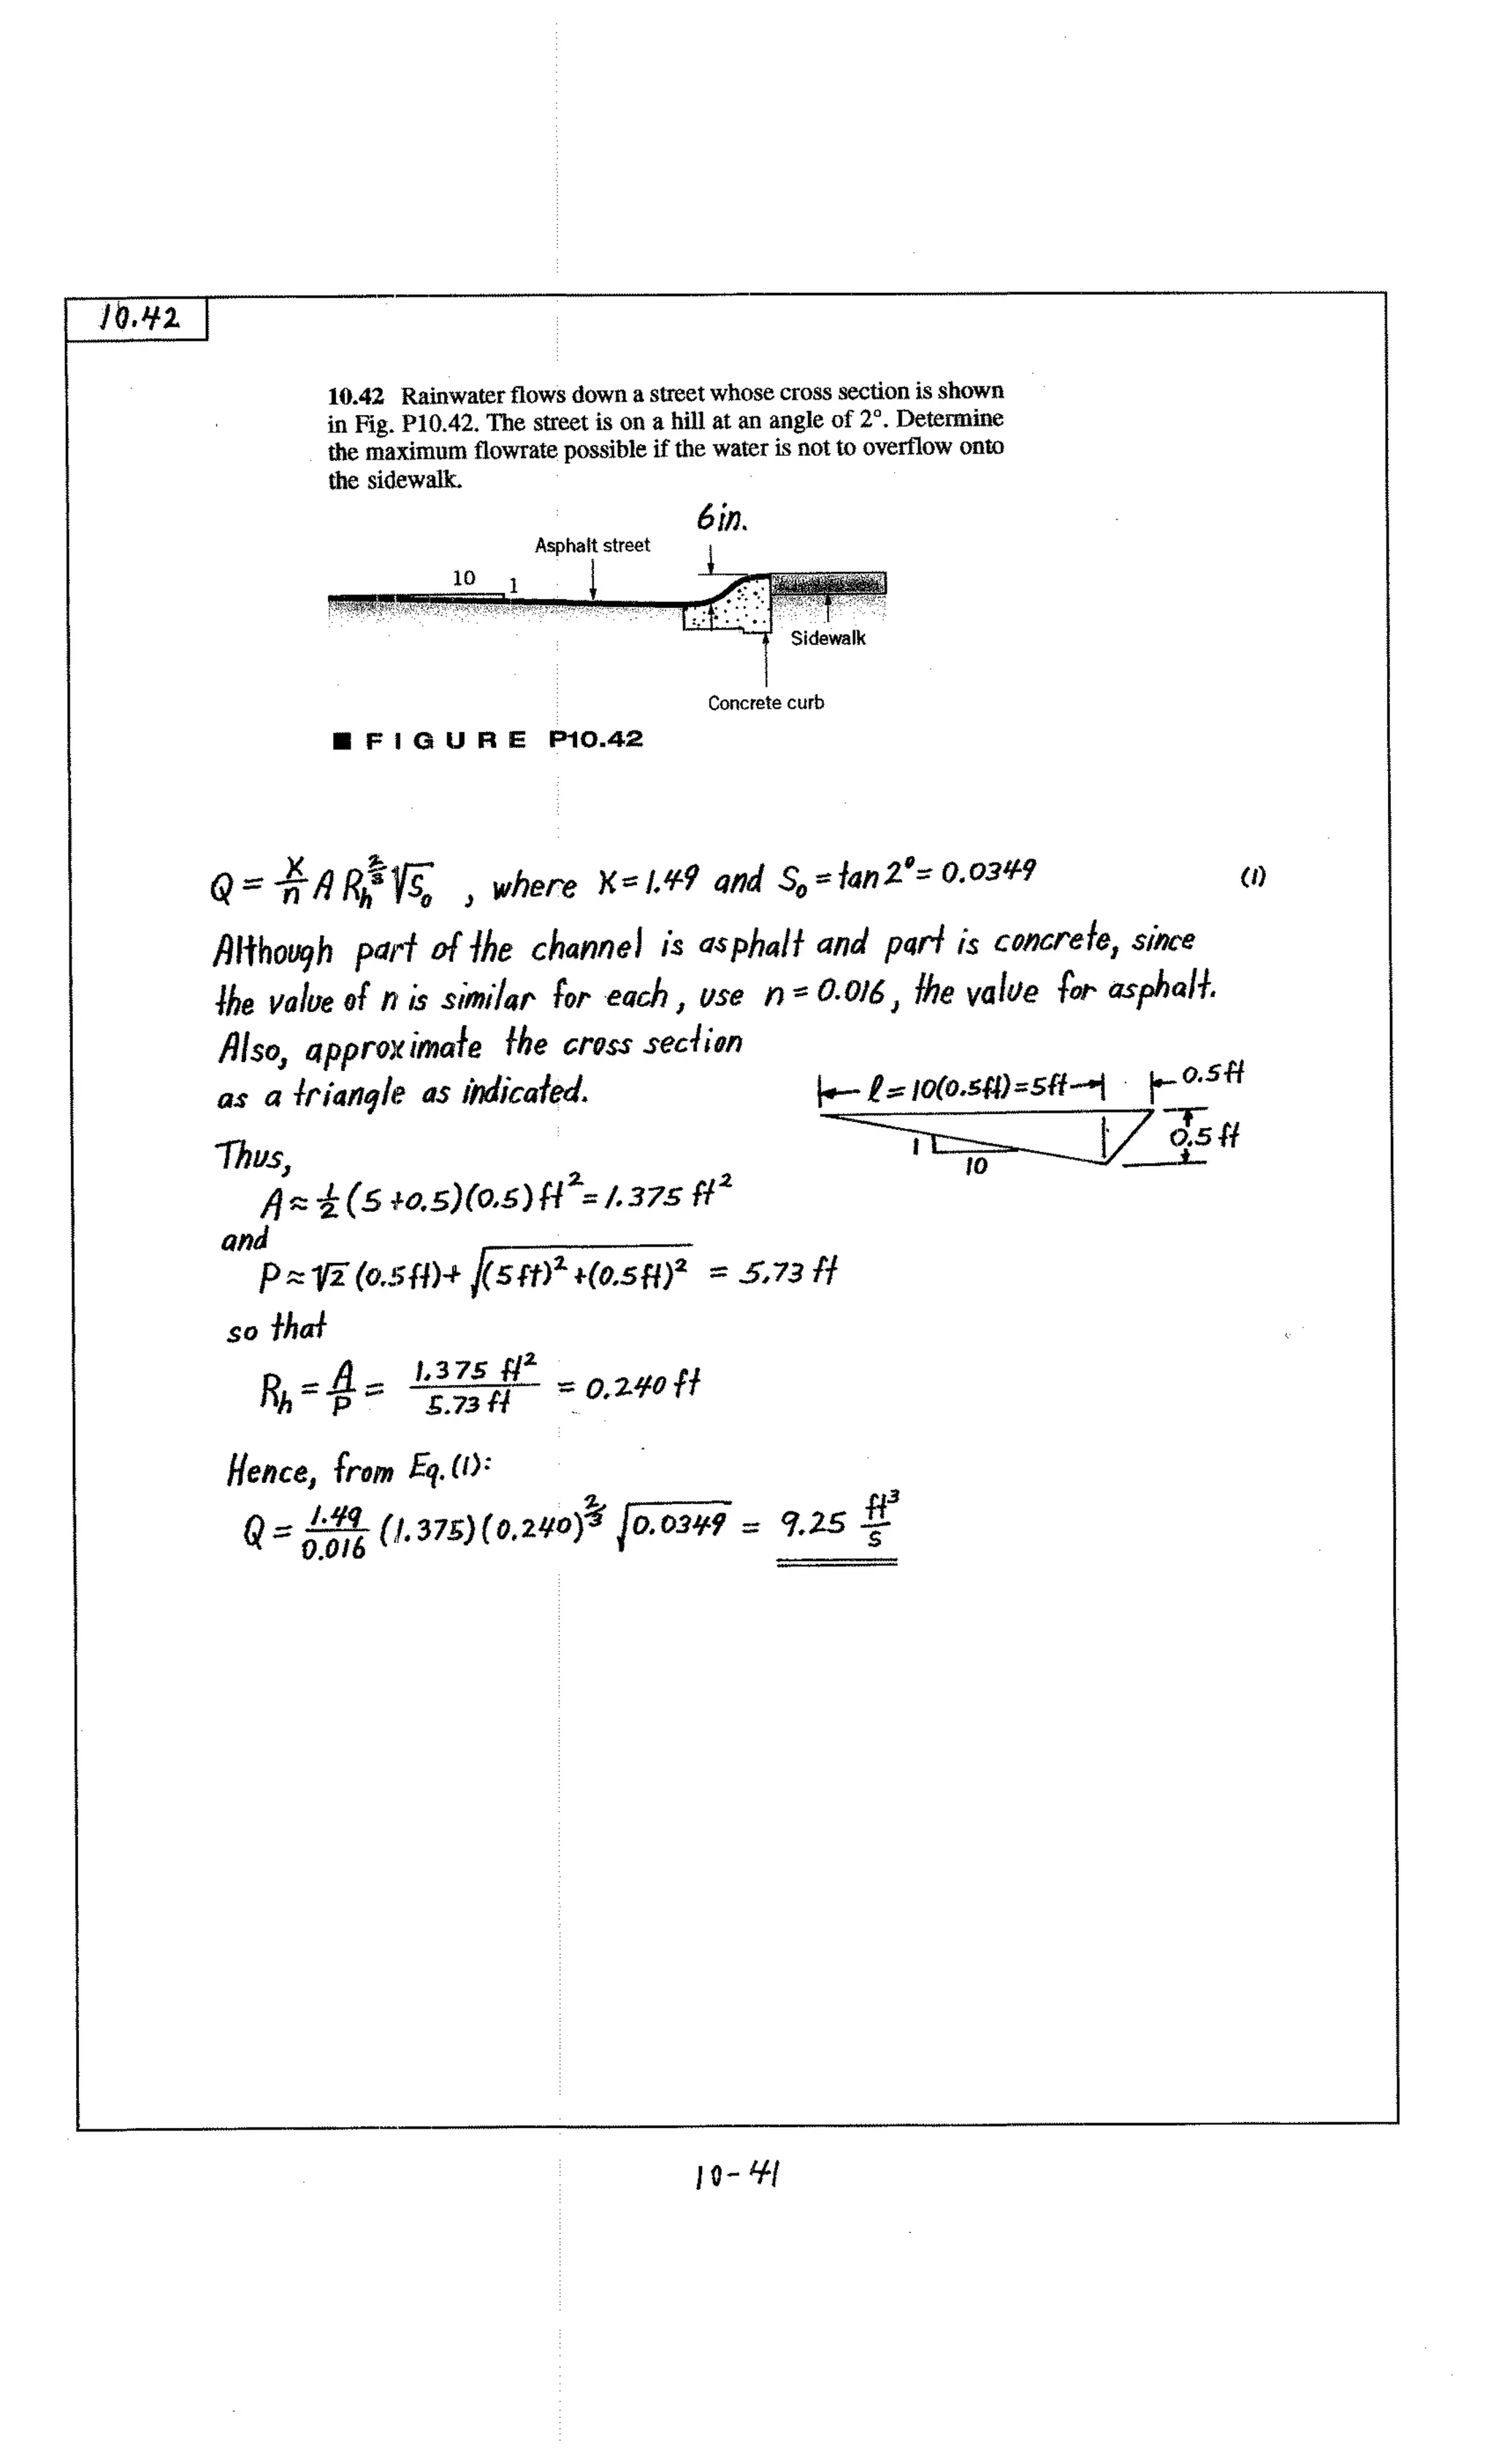 10.42
10.42 Rainwater flows down a street whose cross section is shown
in Fig. P10.42. The street is on a hill at an angle of 2°. Determine
the maximum flowrate possible if the water is not to overflow onto
the sidewalk.
6 in.
Asphalt street
10 1
Sidewalk
Concrete curb
■ FIGURE P10.42
Q = K/n A R_h^(2/3) √S₀ , where K = 1.49 and S₀ = tan 2° = 0.0349 (1)
Although part of the channel is asphalt and part is concrete, since
the value of n is similar for each, use n = 0.016, the value for asphalt.
Also, approximate the cross section
as a triangle as indicated.
ℓ = 10(0.5ft) = 5ft 0.5ft
0.5 ft
1
10
Thus,
A ≈ 1/2 (5 + 0.5)(0.5) ft² = 1.375 ft²
and
P ≈ √2 (0.5 ft) + √((5 ft)² + (0.5 ft)²) = 5.73 ft
so that
R_h = A/P = 1.375 ft² / 5.73 ft = 0.240 ft
Hence, from Eq. (1):
Q = 1.49/0.016 (1.375)(0.240)^(2/3) √0.0349 = 9.25 ft³/s
10-41